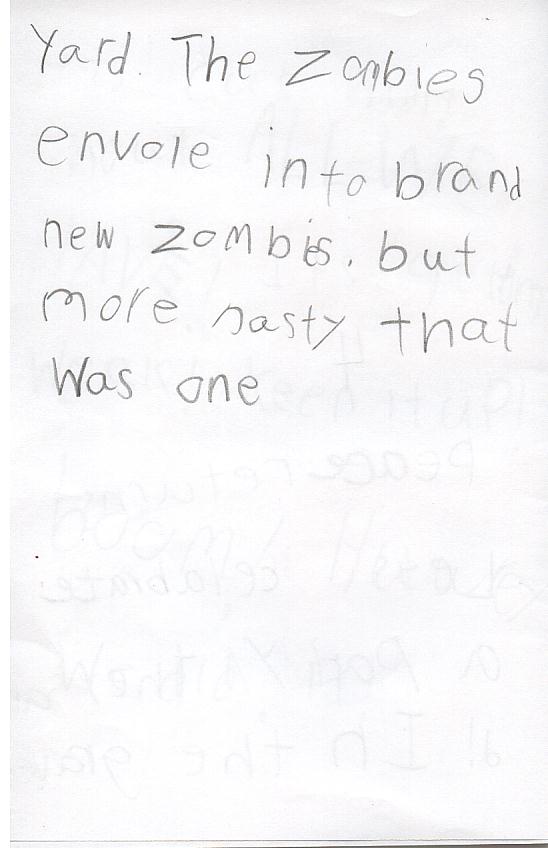 Yard. The Zombies
envole into brand
new zombis. but
more nasty that
Was one